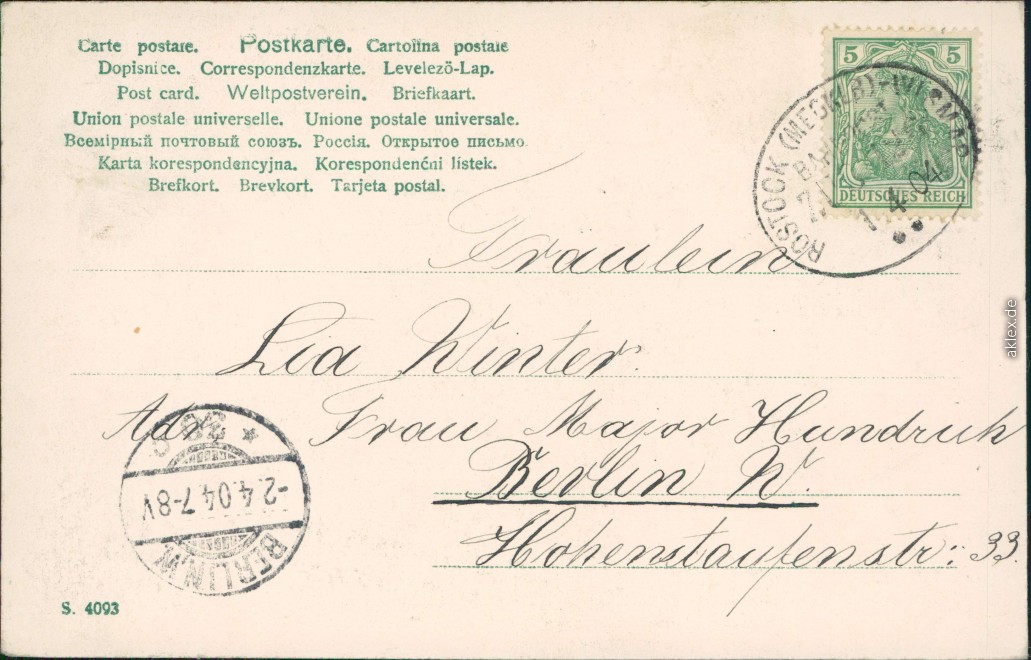 Carte postale. Postkarte. Cartolina postale
Dopisnice. Correspondenzkarte. Levelező-Lap.
Post card. Weltpostverein. Briefkaart.
Union postale universelle. Unione postale universale.
Всемірный почтовый союзъ. Россія. Открытое письмо
Karta korespondencyjna. Korespondenční listek.
Brefkort. Brevkort. Tarjeta postal.
5 5
DEUTSCHES REICH
ROSTOCK (MECKLB)-WISMAR
4 04
Fräulein
Lia Winter.
Adr. Frau Major Hundrich
Berlin W.
Hohenstaufenstr: 33.
-2.4.04.7-8V
BERLIN.W.
S. 4093
aklex.de